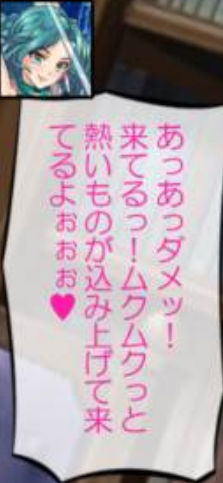 あっあっダメッ！
来てるっ！ムクムクっと
熱いものが込み上げて来
てるよぉぉぉ♥